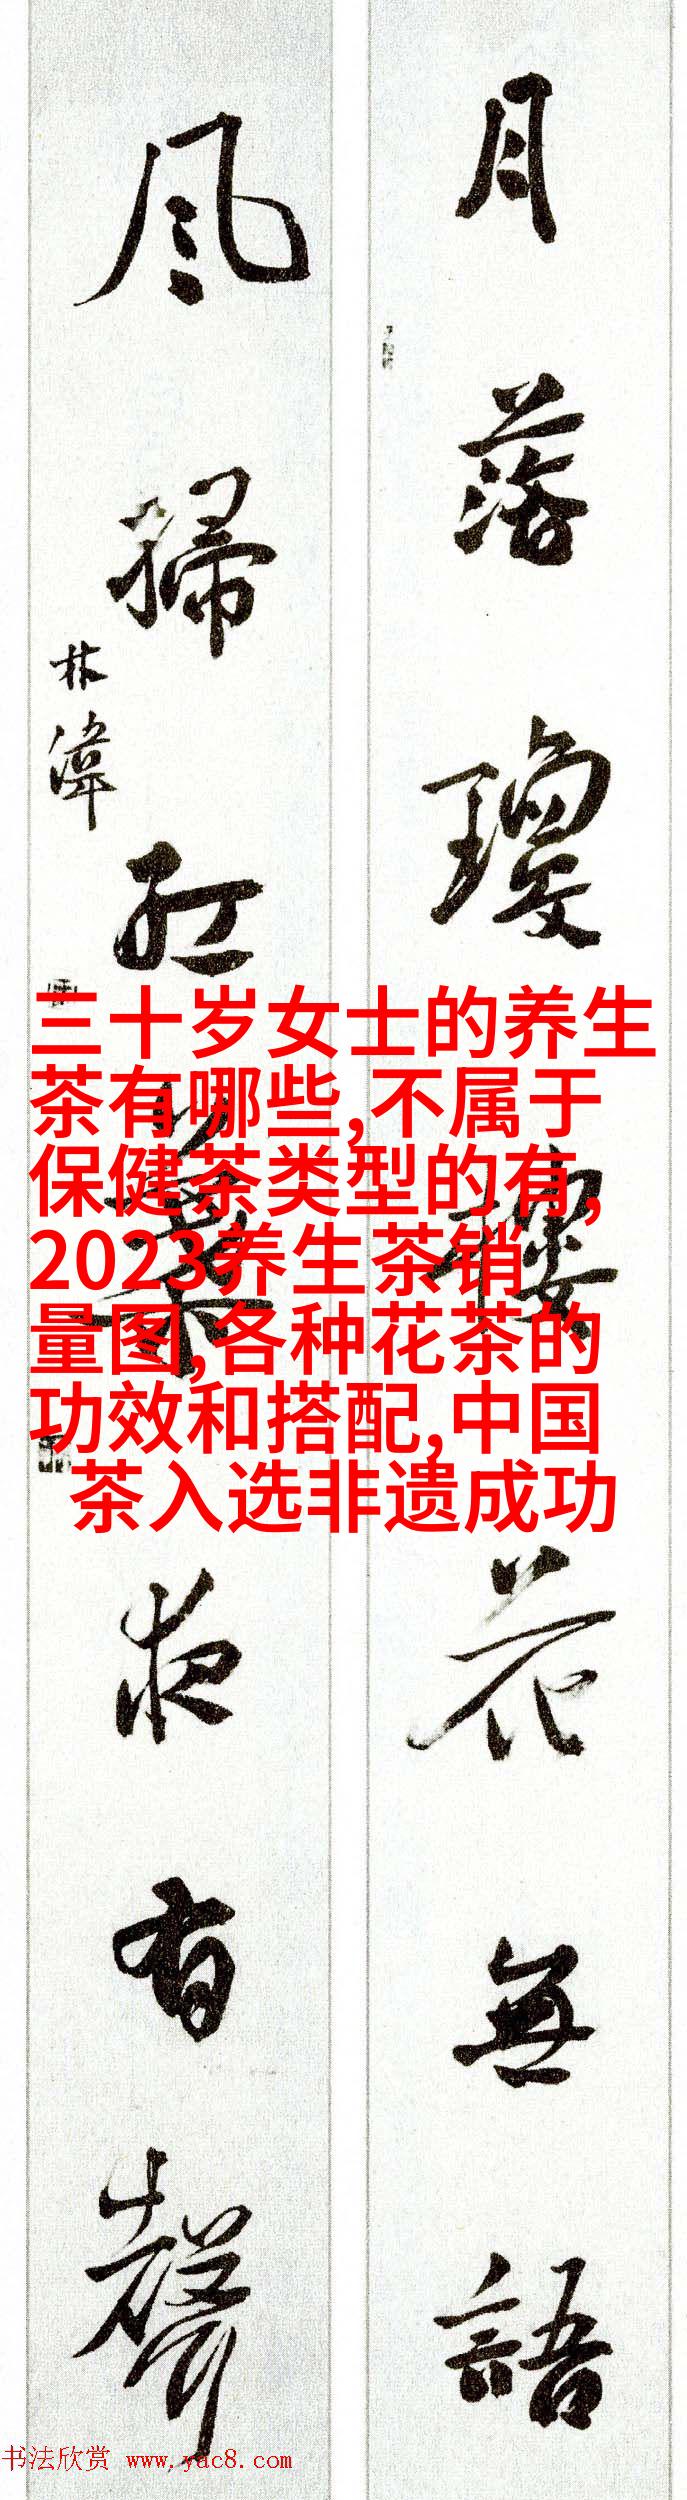 月落瓊樓花無語
風掃紅葉夜有聲
林湋
三十岁女士的养生
茶有哪些,不属于
保健茶类型的有,
2023养生茶销
量图,各种花茶的
功效和搭配,中国
茶入选非遗成功
书法欣赏 www.yac8.com